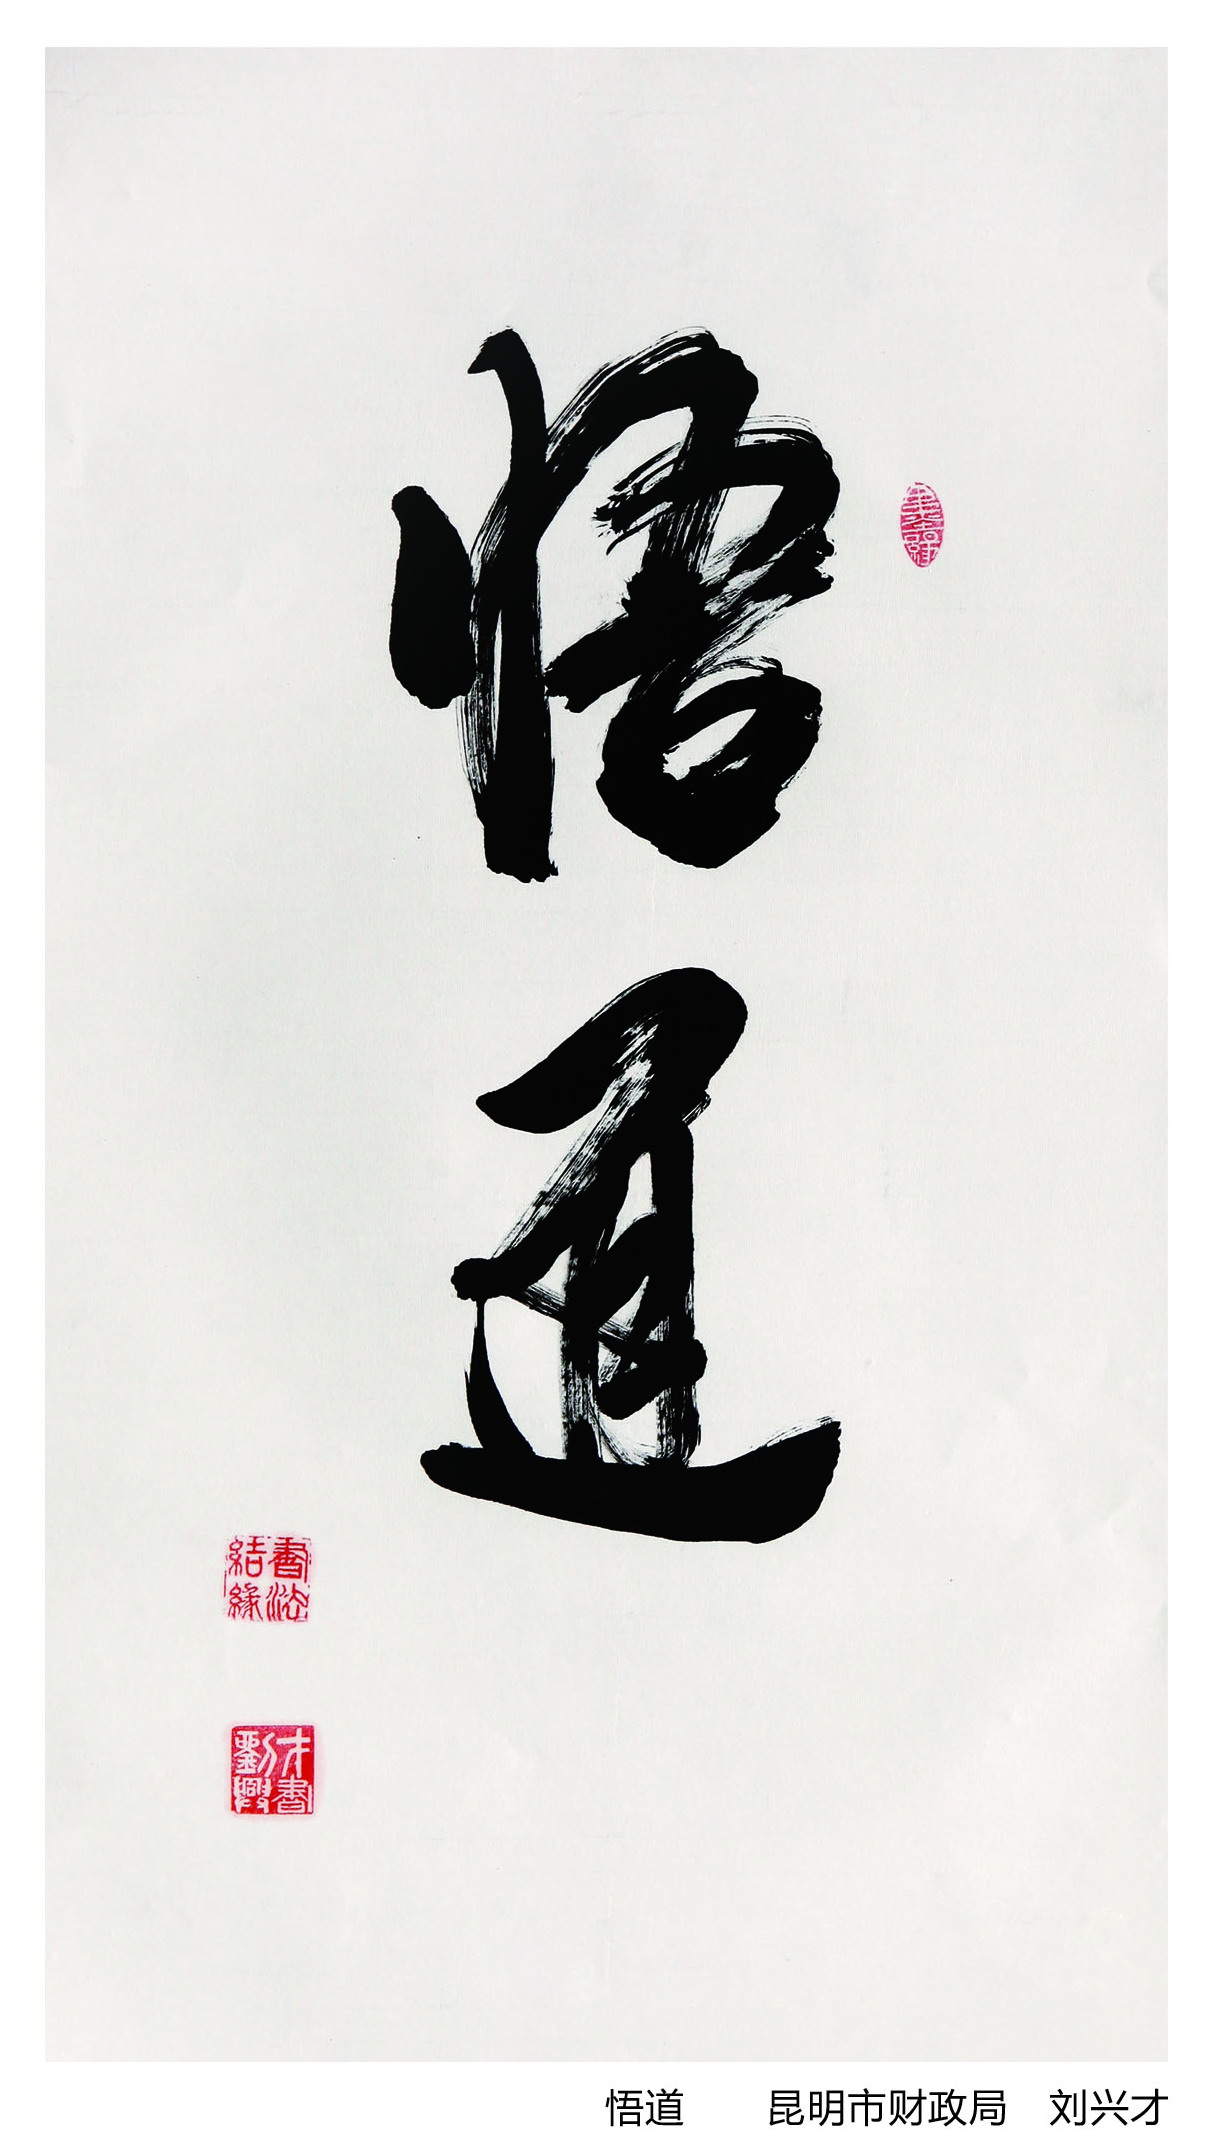 悟
道
書法
結緣
劉興
才書
悟道 昆明市财政局 刘兴才